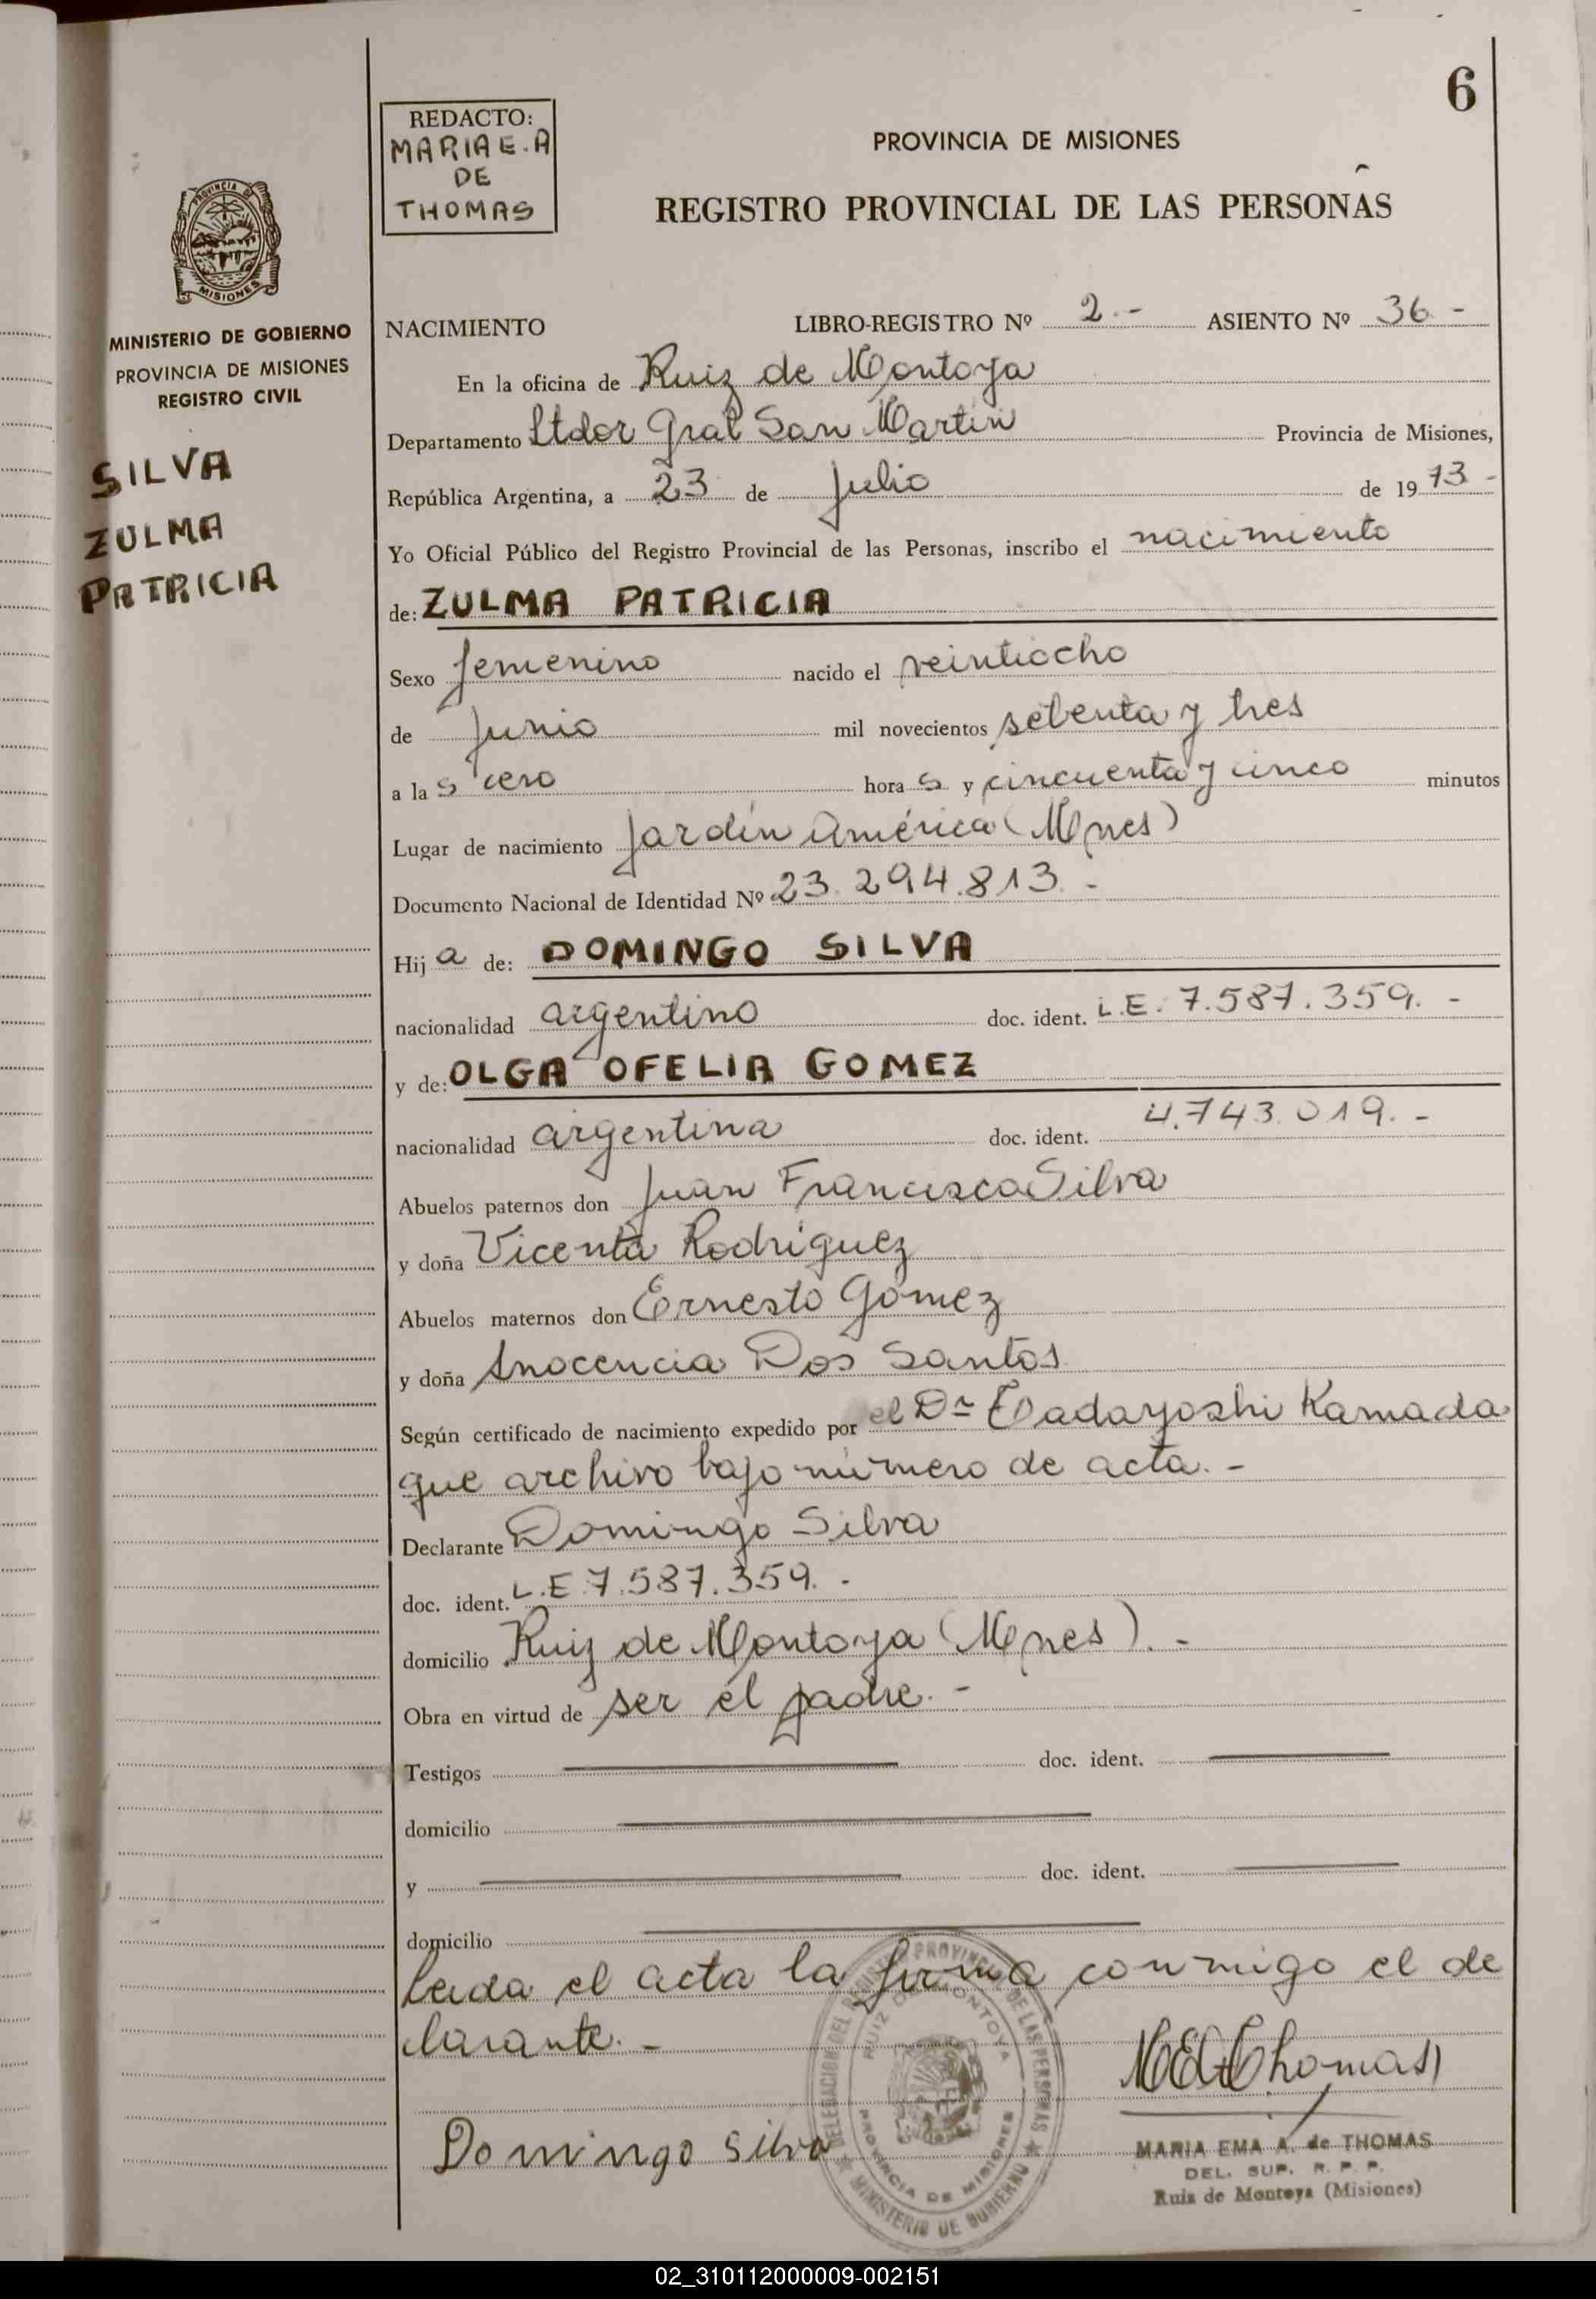 6
REDACTO:
MARIA E. A
DE
THOMAS
PROVINCIA DE MISIONES
REGISTRO PROVINCIAL DE LAS PERSONAS
MISIONES
MINISTERIO DE GOBIERNO
PROVINCIA DE MISIONES
REGISTRO CIVIL
SILVA
ZULMA
PATRICIA
NACIMIENTO LIBRO-REGISTRO Nº 2.- ASIENTO Nº 36-
En la oficina de Ruiz de Montoya
Departamento Ltdor Gral San Martin Provincia de Misiones,
República Argentina, a 23 de julio de 1973-
Yo Oficial Público del Registro Provincial de las Personas, inscribo el nacimiento
de: ZULMA PATRICIA
Sexo femenino nacido el veintiocho
de junio mil novecientos setenta y tres
a las cero horas y cincuenta y cinco minutos
Lugar de nacimiento Jardín América (Mnes)
Documento Nacional de Identidad Nº 23.294.813.-
Hija de: DOMINGO SILVA
nacionalidad argentino doc. ident. L.E. 7.587.359.-
y de: OLGA OFELIA GOMEZ
nacionalidad argentina doc. ident. 4.743.019.-
Abuelos paternos don Juan Francisco Silva
y doña Vicenta Rodriguez
Abuelos maternos don Ernesto Gomez
y doña Inocencia Dos Santos
Según certificado de nacimiento expedido por el Dr Tadayoshi Kamada
que archivo bajo número de acta.-
Declarante Domingo Silva
doc. ident. L.E 7.587.359.-
domicilio Ruiz de Montoya (Mnes).-
Obra en virtud de ser el padre.-
Testigos doc. ident.
domicilio
y doc. ident.
domicilio
Leida el acta la firma conmigo el de
clarante.-
DELEGACION DEL REGISTRO PROVINCIAL DE LAS PERSONAS
RUIZ DE MONTOYA
PROVINCIA DE MISIONES
MINISTERIO DE GOBIERNO
Domingo Silva
MEA Thomas
MARIA EMA A. de THOMAS
DEL. SUP. R. P. P.
Ruiz de Montoya (Misiones)
02_310112000009-002151